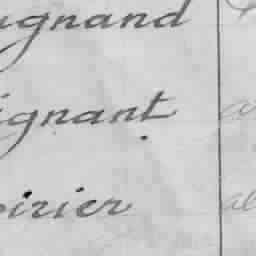 ugnand
ignant
oirier